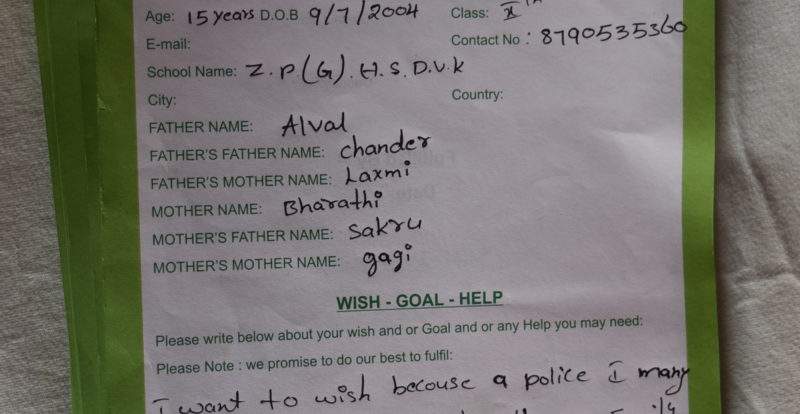 Age: 15 years D.O.B 9/7/2004 Class: X TH
E-mail: Contact No : 8790535360
School Name: Z.P(G).H.S.D.V.K
City: Country:
FATHER NAME: Alval
FATHER'S FATHER NAME: chander
FATHER'S MOTHER NAME: Laxmi
MOTHER NAME: Bharathi
MOTHER'S FATHER NAME: Sakru
MOTHER'S MOTHER NAME: gagi
WISH - GOAL - HELP
Please write below about your wish and or Goal and or any Help you may need:
Please Note : we promise to do our best to fulfil:
I want to wish becouse a police I many